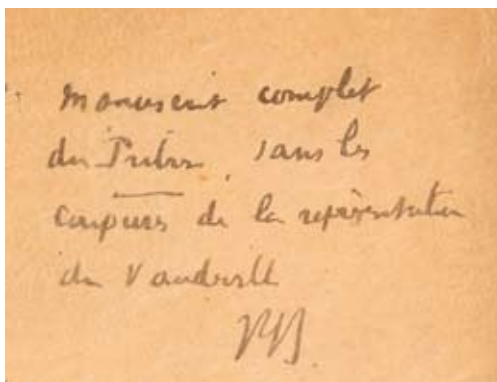 Manuscrit complet
du Tribun, sans les
coupures de la représentation
du Vaudeville
PB.